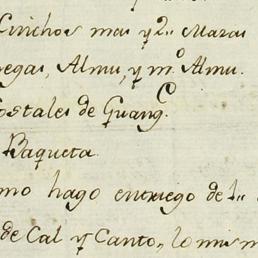 Cinchos mas y 2.. Maras
egas, Almu, y m.º Almu.
ostales de Guang.C
Baqueta.
mo hago entriego de 1..
de Cal y Canto, lo mis m